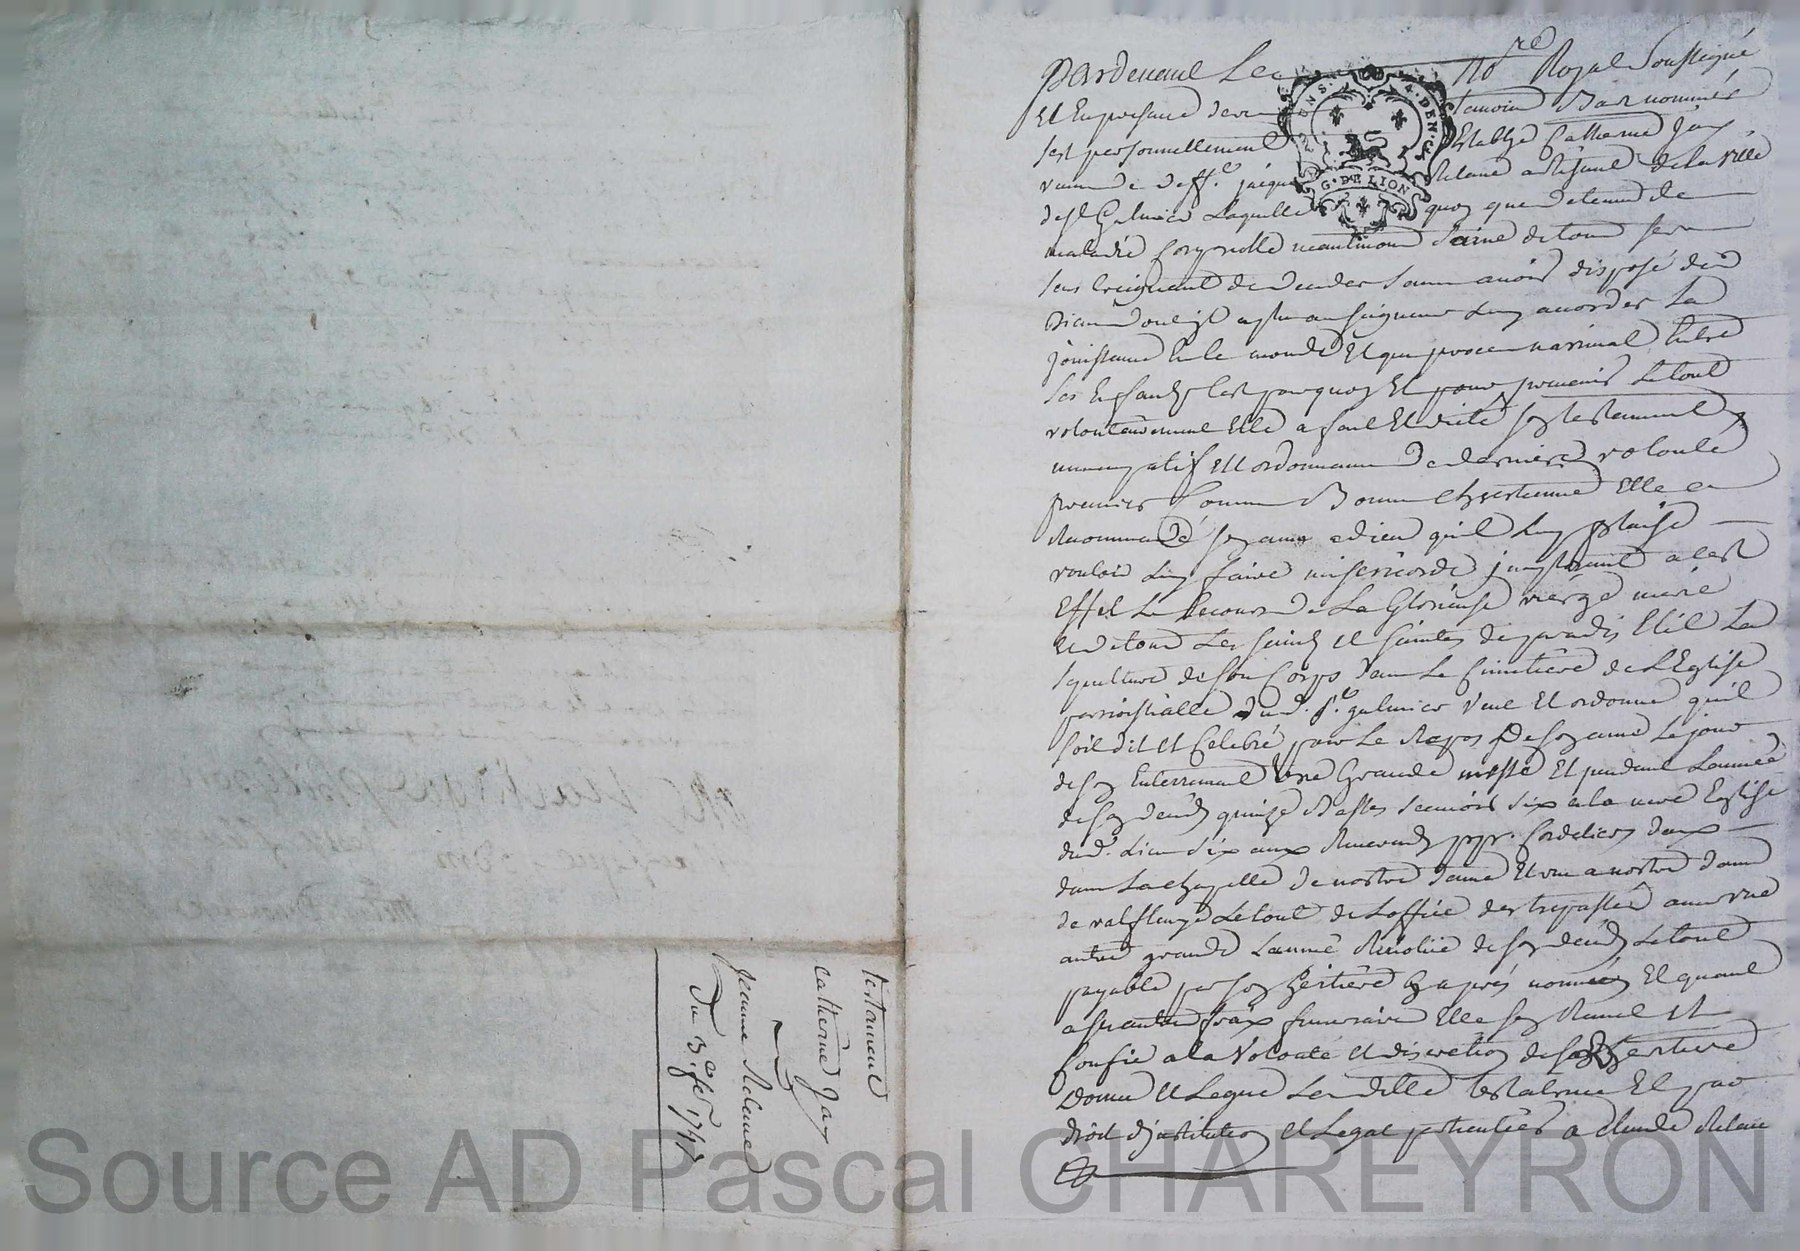 Pardevant Le No.re Royal Soussigné
Et En presence des temoins Bas nommés
fut personnellement Establye Catherine Jay
veuve de deff.t jacque Relave artisant de la ville
de s.t Galmier Laquelle quoy que detenue de
maladie Corporelle neantmoins Saine de tous ses
sens Craignant de deceder sans avoir disposé des
Biens dont il a plu au seigneur Luy accorder La
jouissance En Ce monde Et que proces n'arrivat Entre
Ses Enfants C'est pourquoy Et pour prevenir Le tout
volontairement Elle a fait Et dicté son testament
nuncupatif Et ordonnance de derniere volonté
premier Comme Bonne Chrestienne Elle a
Recommandé son ame a dieu qu'il Luy plaise
vouloir Luy faire misericorde implorant a cest
Effet Le Secours de La Glorieuse vierge marie
Et de tous Les saints Et saintes de paradis Elit La
sepulture de son Corps dans Le Cimetiere de L'Eglise
parroissialle dud. s.t galmier Veut Et ordonne qu'il
soit dit Et Celebré pour Le Repos De son ame Le jour
de son Enterrement Une Grande messe Et pendant L'année
de son deceds quinze Basses scavoir six a la mere Eglise
dud. Lieu six aux Reverends pp. Cordeliers deux
dans La chapelle de nostre dame Et une a nostre dame
de valfleury Le tout de L'office des trepassés avec une
autre grande L'année Revolue de son deceds Le tout
payable par son heritiere Cy apres nommée Et quant
a ses autres fraix funeraire Elle s'en Remet Et
Confie a la Volonté Et discretion de son heritiere
Donne Et Legue La ditte testatrice Et par
droit d'institution Et Legat particulier a Claude Relave
G. DE LION
4. DEN.
testament
Catherine Jay
a
Jeanne Relave
Du 3.e fe.r 1747
Source AD Pascal CHAREYRON